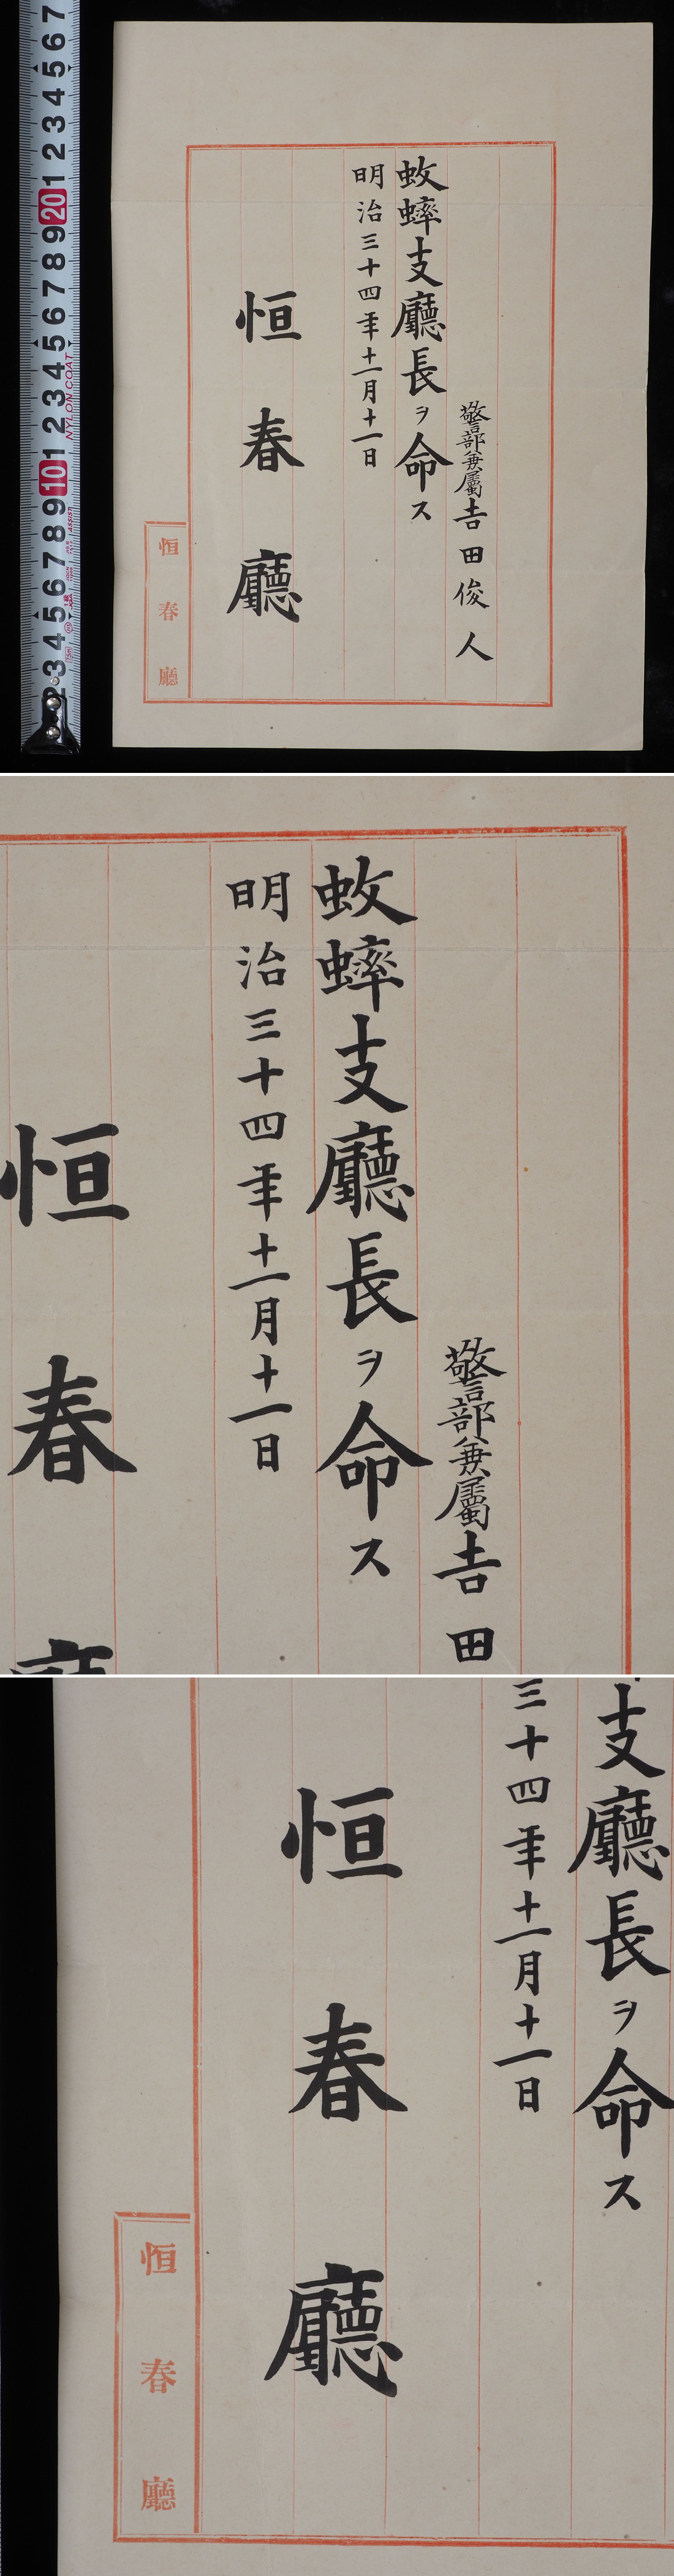 警部兼屬吉田俊人
蚊蟀支廳長ヲ命ス
明治三十四年十一月十一日
恒春廳
恒春廳
7
6
5
4
3
2
1
20
9
8
7
6
5
4
3
2
1
10
9
8
7
6
5
4
3
2
NYLON COAT
ASSIST
明治三十四年十一月十一日
蚊蟀支廳長ヲ命ス
警部兼屬吉田
恒春
支廳長ヲ命ス
三十四年十一月十一日
恒春廳
恒春廳